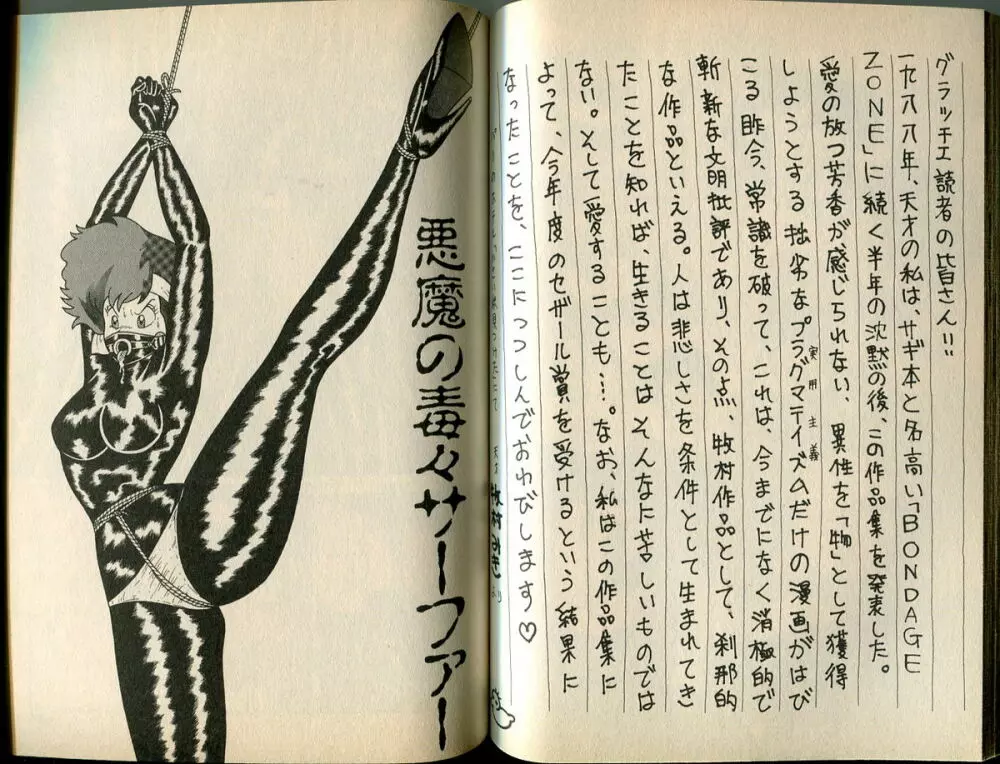 グラッチェ読者の皆さん!!
一九八八年、天才の私は、サギ本と名高い「BONDAGE
ZONE」に続く半年の沈黙の後、この作品集を発表した。
愛の放つ芳香が感じられない、異性を「物」として獲得
しようとする拙劣なプラグマティズムだけの漫画がはび
実用主義
こる昨今、常識を破って、これは、今までになく消極的で
斬新な文明批評であり、その点、牧村作品として、刹那的
な作品といえる。人は悲しさを条件として生まれてき
たことを知れば、生きることはそんなに苦しいものでは
ない。そして愛することも…。なお、私はこの作品集に
よって、今年度のセザール賞を受けるという結果に
なったことを、ここにつつしんでおわびします♡
天才 牧村みき より
悪魔の毒々サーファー